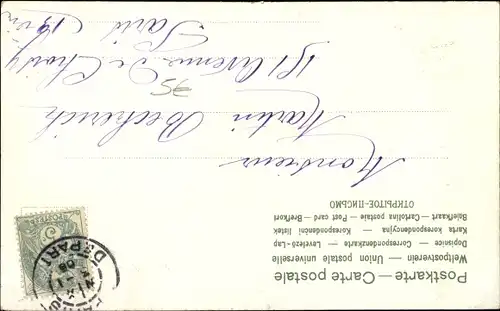 Postkarte — Carte postale
Weltpostverein — Union postale universelle
Dopisnice — Correspondenzkarte — Levelező-Lap
Karta korespondencyjna — Korespondenční lístek
Briefkaart — Cartolina postale — Post card — Brefkort
ОТКРЫТОЕ-ПИСЬМО
Monsieur
Martin Becherich
181 Avenue de Choisy
Paris
75
DEPART